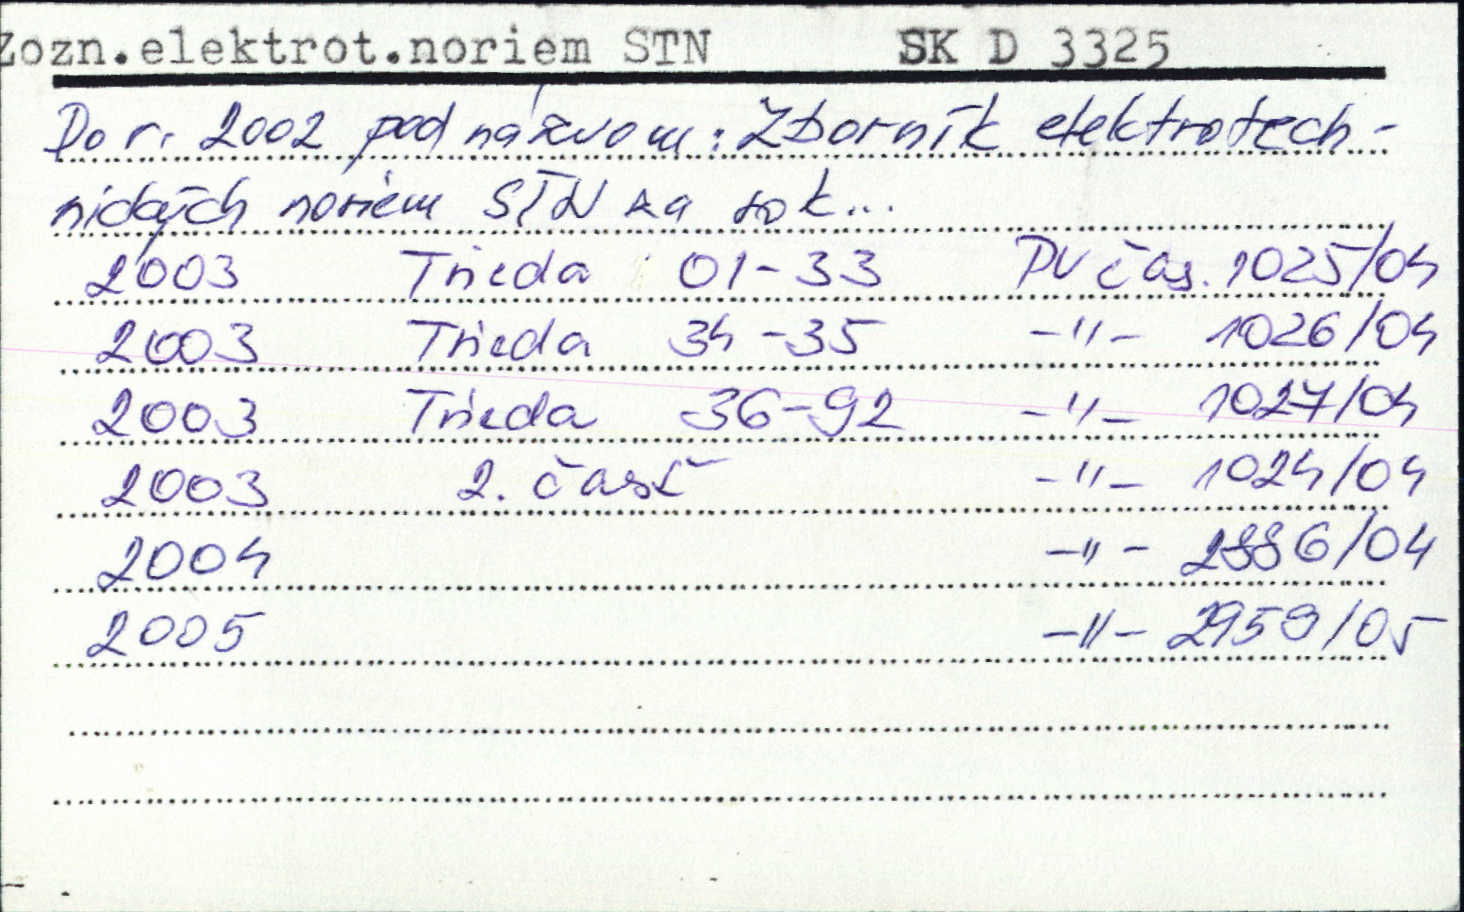 Zozn.elektrot.noriem STN SK D 3325
Do r. 2002 pod názvom: Zborník elektrotech-
nických noriem STN za rok...
2003 Trieda 01-33 PV čas. 1025/04
2003 Trieda 34-35 -"- 1026/04
2003 Trieda 36-92 -"- 1027/04
2003 2. časť -"- 1024/04
2004 -"- 2886/04
2005 -"- 2959/05